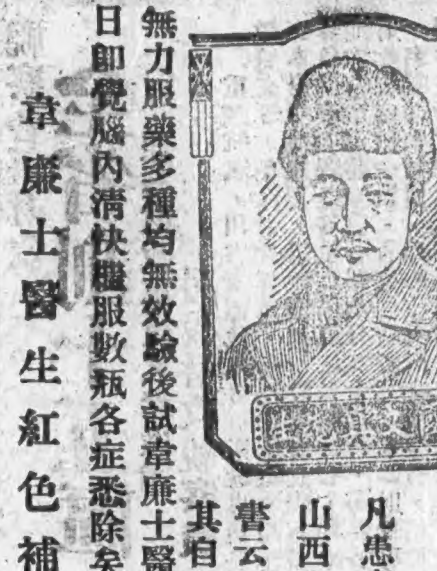 凡患
山西
書云
其自
無力服藥多種均無效驗後試韋廉士醫
日卽覺腦內清快繼服數瓶各症悉除矣
韋廉士醫生紅色補